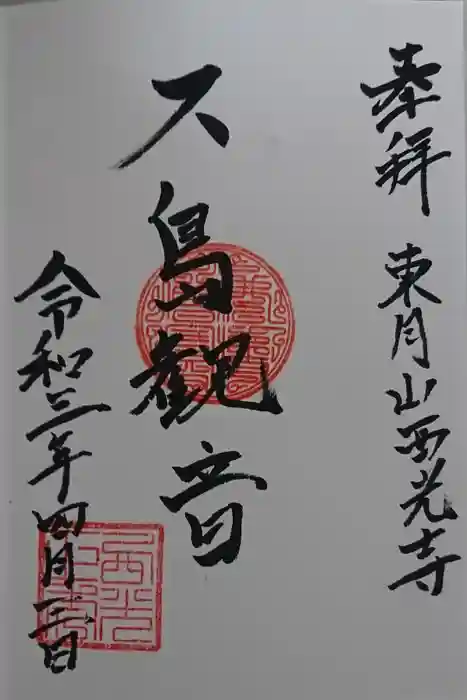 奉拝 東月山西光寺
ス島觀音
令和三年四月三日